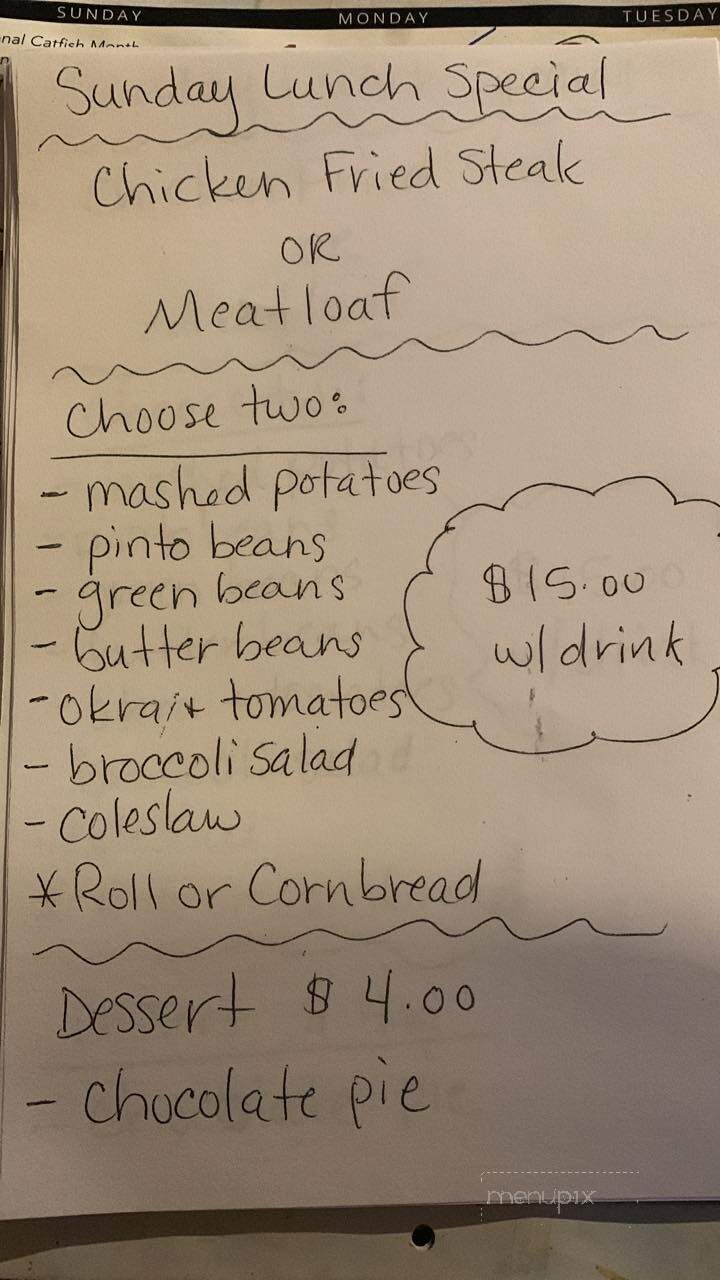 SUNDAY MONDAY TUESDAY
nal Catfish Month
Sunday Lunch Special
Chicken Fried Steak
OR
Meatloaf
Choose two:
- mashed potatoes
- pinto beans
- green beans
- butter beans
- okra + tomatoes
- broccoli salad
- coleslaw
* Roll or Cornbread
$15.00
w/ drink
Dessert $4.00
- Chocolate pie
menupix